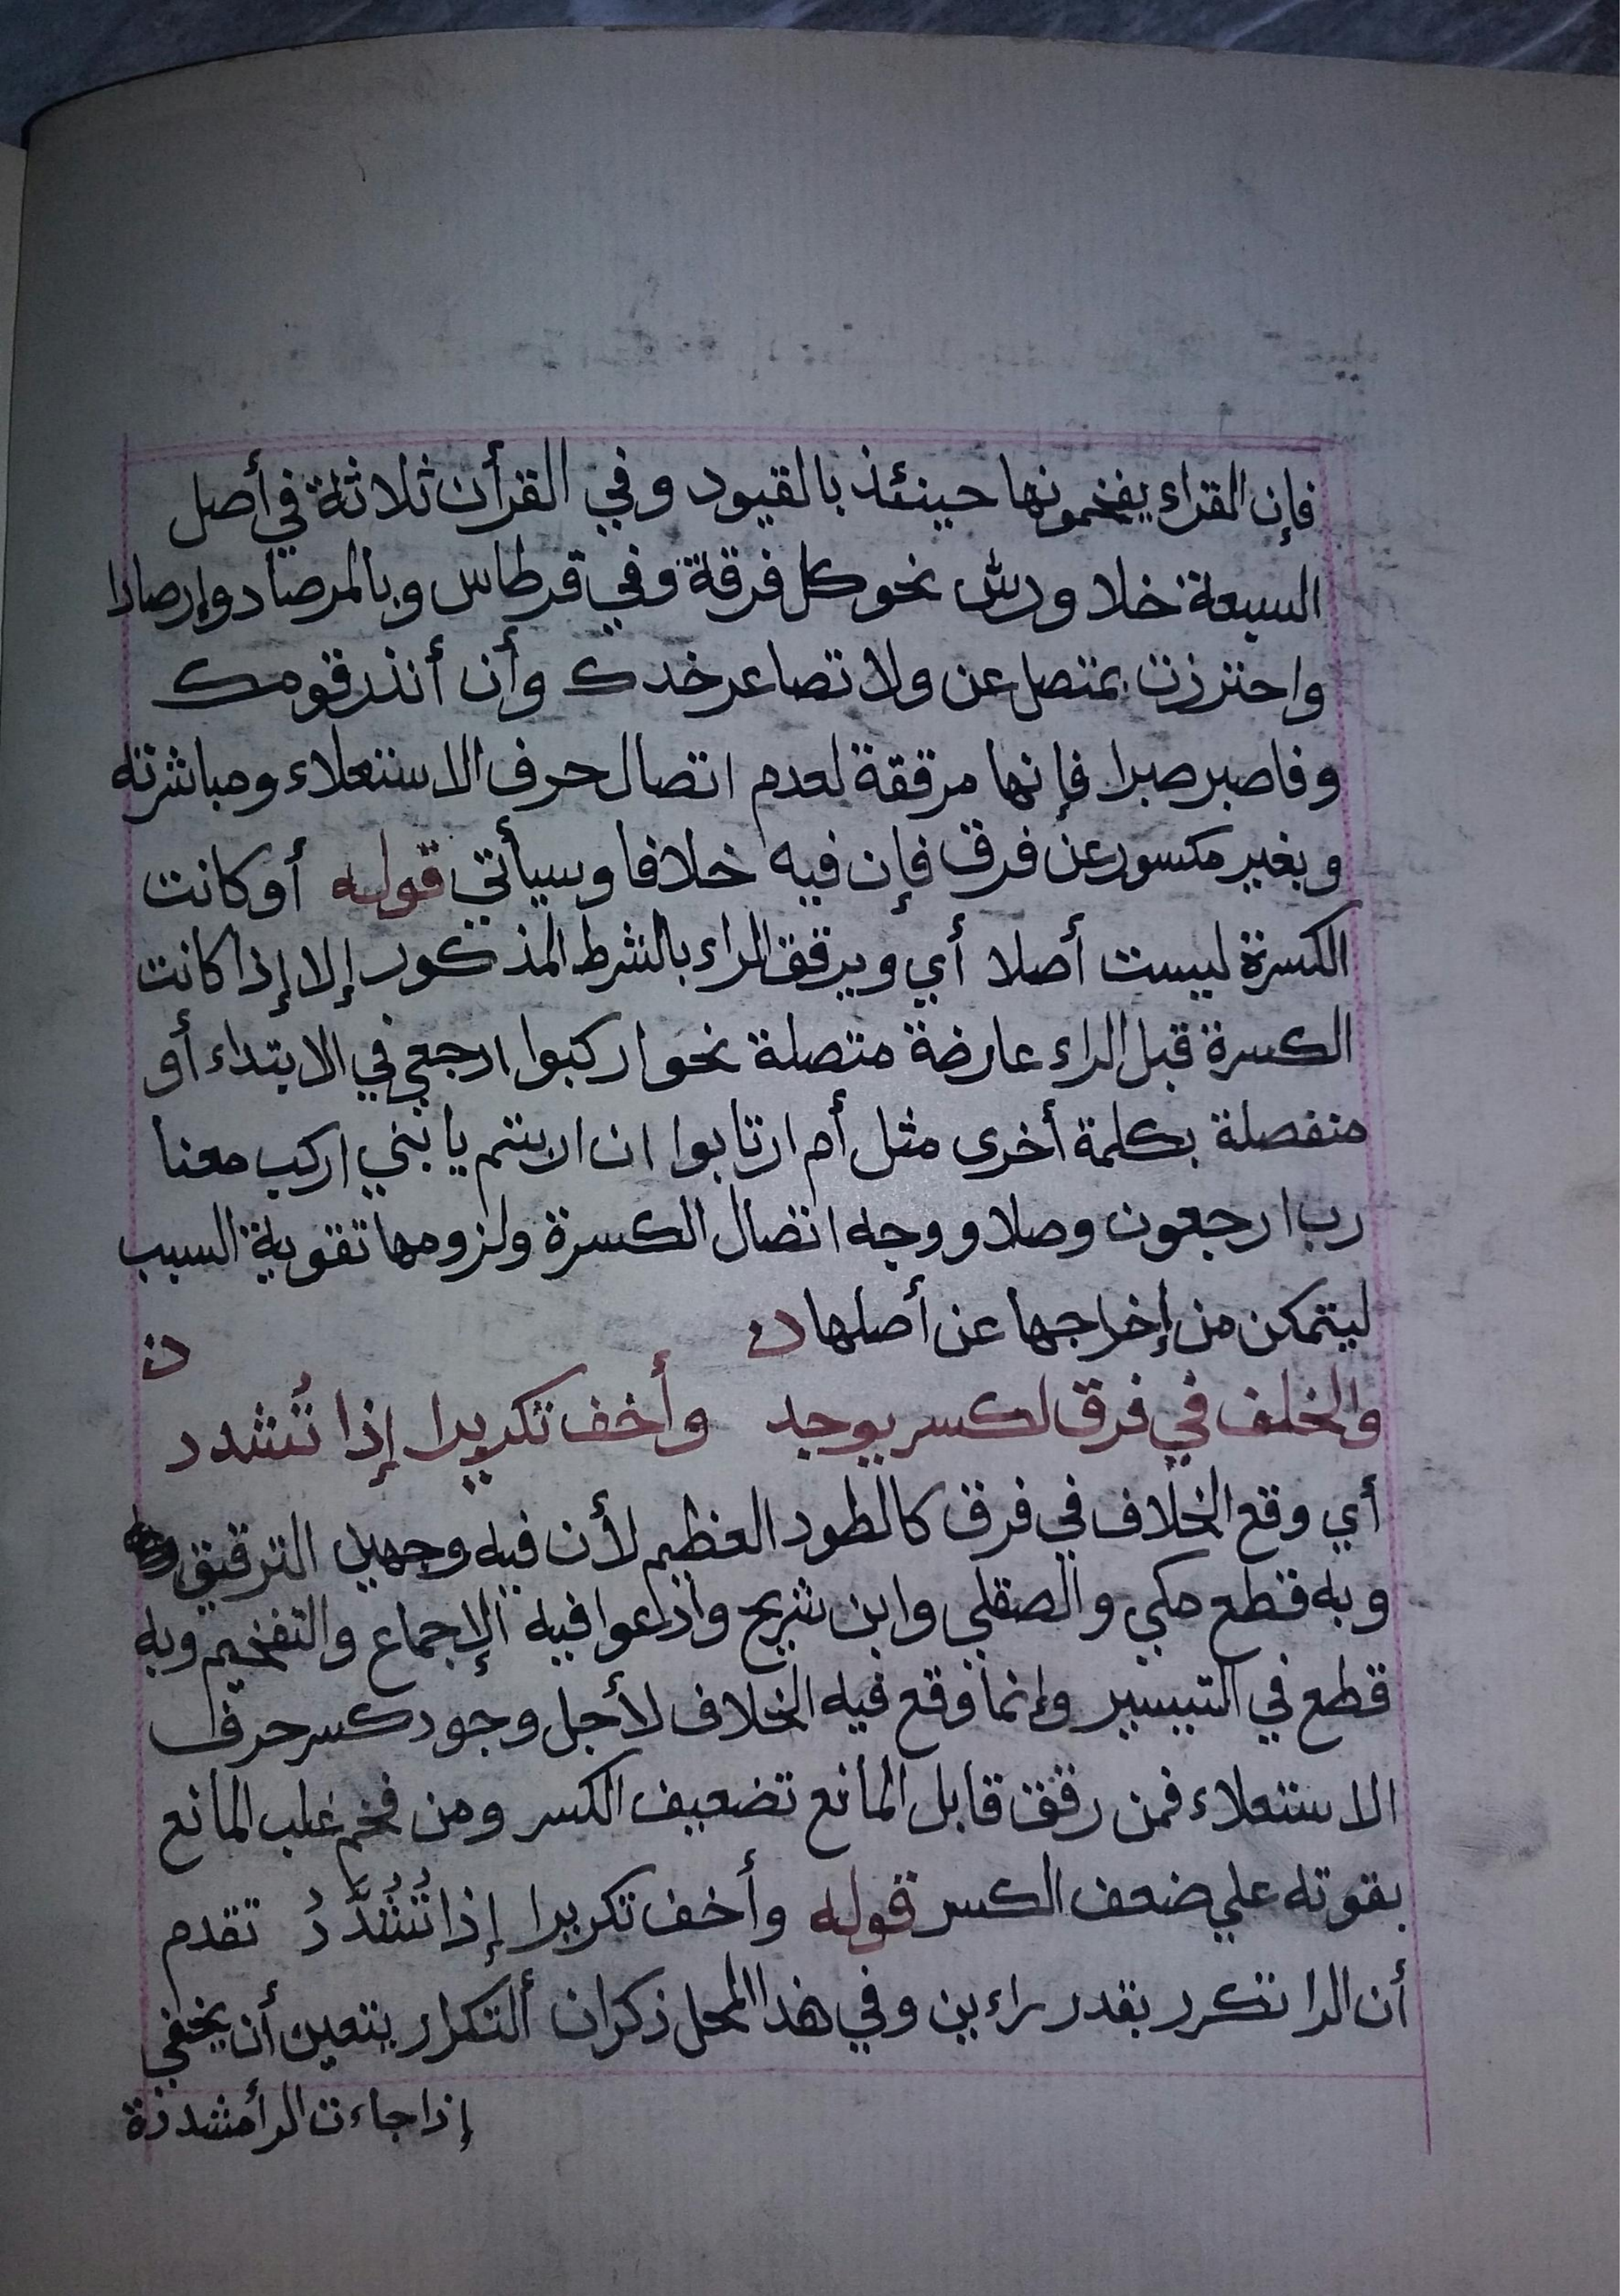 فإن القراء يفخمونها حينئذ بالقيود وفي القرأن ثلاثة في أصل
السبعة خلا ورش نحو كل فرقة وفي قرطاس وبالمرصاد وإرصادا
واحترزت بمتصل عن ولا تصاعر خدك وأن أنذر قومك
وفاصبر صبرا فإنها مرققة لعدم اتصال حرف الاستعلاء ومباشرته
وبغير مكسور عن فرق فإن فيه خلافا وسيأتي قوله أو كانت
الكسرة ليست أصلا أي ويرقق الراء بالشرط المذكور إلا إذا كانت
الكسرة قبل الراء عارضة متصلة نحو اركبوا ارجعي في الابتداء أو
منفصلة بكلمة أخرى مثل أم ارتابوا ان اربتم يا بني اركب معنا
رب ارجعون وصلا ووجه اتصال الكسرة ولزومها تقوية السبب
ليتمكن من إخراجها عن أصلها ن ن
والخلف في فرق لكسر يوجد وأخف تكريرا إذا تُشدد
أي وقع الخلاف في فرق كالطود العظيم لأن فيه وجهين الترقيق
وبه قطع مكي والصقلي وابن شريح وادعوا فيه الإجماع والتفخيم وبه
قطع في التيسير وإنما وقع فيه الخلاف لأجل وجود كسر حرف
الاستعلاء فمن رقق قابل المانع تضعيف الكسر ومن فخم غلب المانع
بقوته علي ضعف الكسر قوله وأخف تكريرا إذا تُشُدَّدُ تقدم
أن الرا تكرر بقدر راءين وفي هذا المحل ذكر ان ألتكرار يتعين أن يخفي
إذا جاءت الرأ مشددة